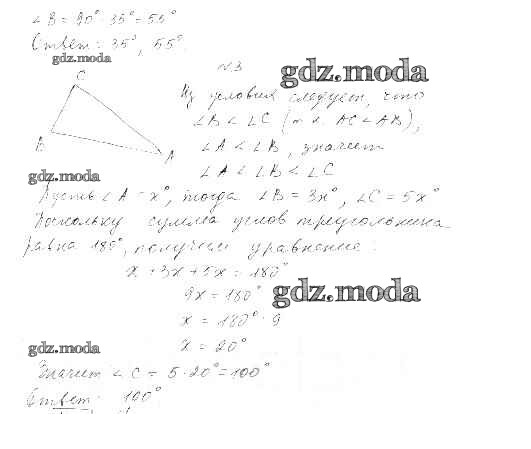 ∠B = 90° - 35° = 55°
Ответ: 35°, 55°.
gdz.moda
№3
gdz.moda
C
B
A
Из условия следует, что
∠B < ∠C (т.к. AC < AB),
∠A < ∠B, значит
∠A < ∠B < ∠C
gdz.moda
Пусть ∠A = x°, тогда ∠B = 3x°, ∠C = 5x°
Поскольку сумма углов треугольника
равна 180°, получим уравнение:
x + 3x + 5x = 180°
9x = 180°
gdz.moda
x = 180° : 9
x = 20°
gdz.moda
Значит ∠C = 5 · 20° = 100°
Ответ: 100°